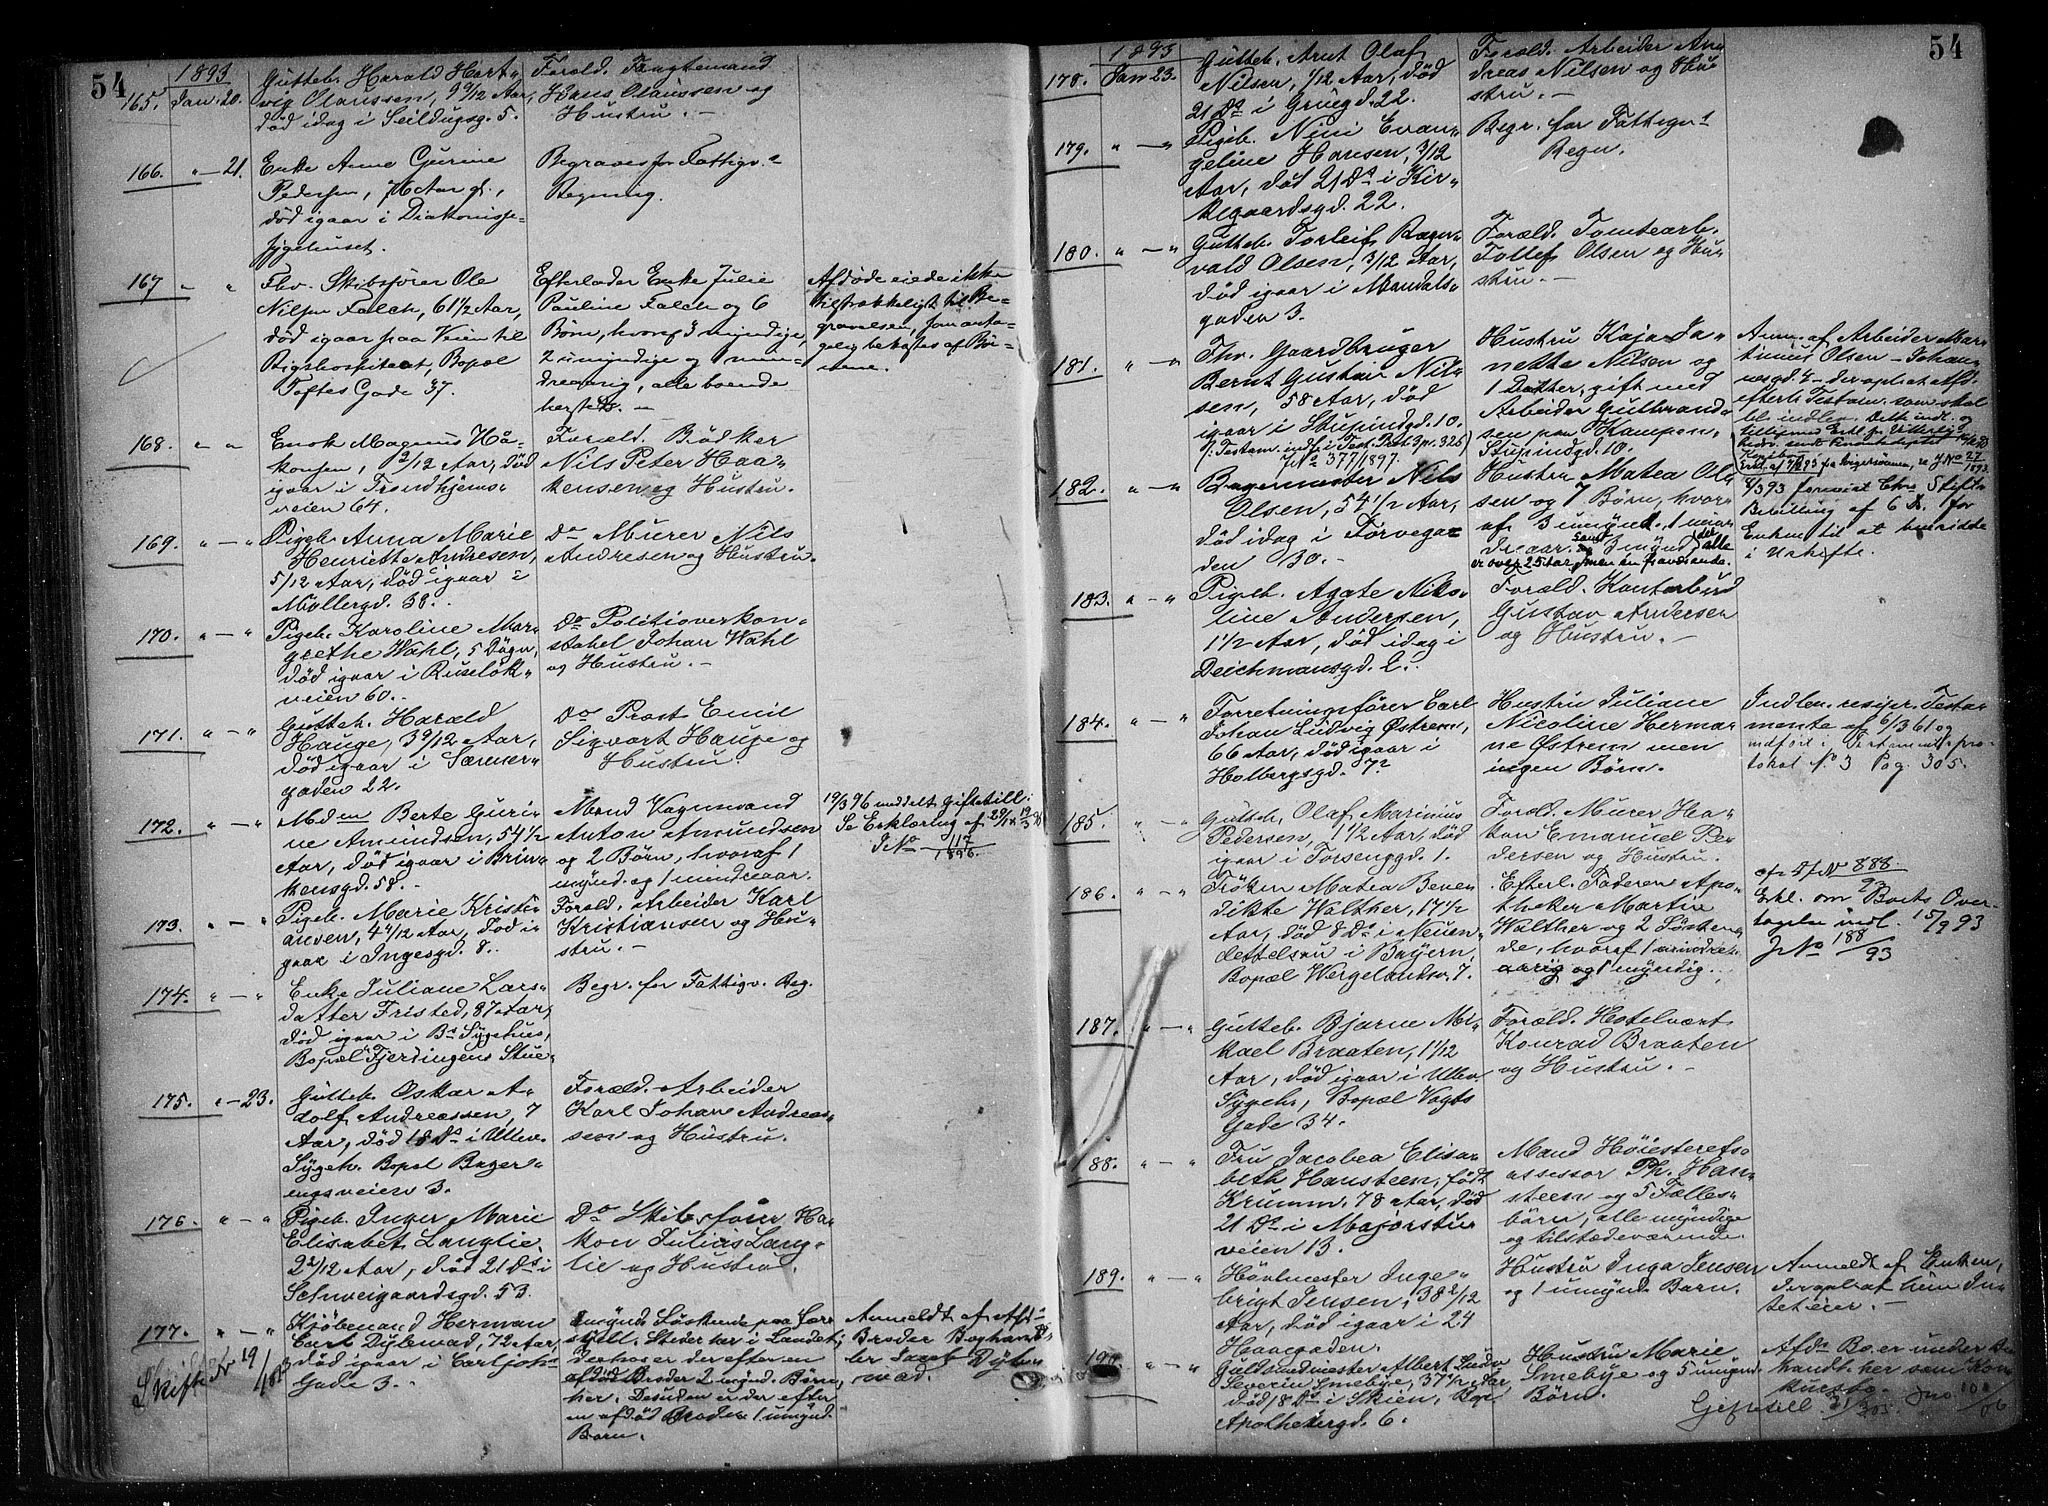 54
1893
165. Jan. 20.
Gutteb. Harald Hart-
vig Olaussen, 9 9/12 Aar,
død idag i Seildugsg. 5.
Foræld. Fragtemand
Olaussen og
Hustru. —
166. " — 21.
Enke Anne Gurine
Pedersen, 76 Aar gl.,
død igaar i Diakonisse-
sygehuset.
Begraves for Fattigv.s
Regning.
167 " "
Fhv. Skibsfører Ole
Nilsen Falch, 61 1/2 Aar,
død igaar paa Veien til
Rigshospitalet, Bopæl
Toftes Gade 37.
Efterlader Enke Julie
Pauline Falch og 6
Børn, hvoraf 3 myndige,
2 umyndige og 1 min-
dreaarig, alle boende
her
Afdøde eiede ikke
tilstrækkeligt til Be-
gravelsen, som anta-
gelig bekostes af Bør-
nene.
168. " "
Enok Magnus Haa-
konsen, 2/12 Aar, død
igaar i Trondhjems-
veien 64.
Foræld. Bødker
Nils Peter Haa-
kensen og Hustru.
169. " — "
Pigeb. Anna Marie
Henriette Andresen,
5/12 Aar, død igaar i
Møllergd. 38.
Do Murer Nils
Andresen og Hustru.
170. " — "
Pigeb. Karoline Mar-
grethe Wahl, 5 Døgn,
død igaar i Ruseløk-
veien 60.
Do Politioverkon-
stabel Johan Wahl
og Hustru. —
171. " — "
Gutteb. Harald
Hauge, 3 9/12 Aar,
død igaar i Sarner-
gaden 22.
Do Prost Emil
Sigvart Hauge og
Hustru.
172. " — "
Mdm Berte Guri-
ne Amundsen, 54 1/2
Aar, død igaar i Brin-
kensgd. 58. —
Mand Vognmand
Anton Amundsen
og 2 Børn, hvoraf 1
mynd. og 1 mindreaar.
19/3 96 meddelt Giftetill:
Se Erklæring af
JNo 117/1896.
173. " — "
Pigeb. Marie Kristi-
ansen, 4 4/12 Aar, død i-
gaar i Ingesgd. 8.
Foræld. Arbeider Karl
Kristiansen og Hu-
stru. —
174. " — "
Enke Juliane Lars-
datter Fristed, 87 Aar,
død igaar i Bs Sygehus,
Bopæl Fjerdingens Stue.
Begr. for Fattigv. Reg.
175. " — 23.
Gutteb. Oskar A-
dolf Andreassen, 7
Aar, død 18 Ds i Ullev.
Sygeh. Bopæl Bager-
engsveien 3.
Foræld. Arbeider
Karl Johan Andreas-
sen og Hustru.
176. " — "
Pigeb. Inger Marie
Elisabet Langlie,
2 2/12 Aar, død 21 Ds i
Schweigaardsgd. 53.
Do Skibsfører Ha-
kon Julius Lang-
lie og Hustru.
177. " — "
Kjøbmand Herman
Carl Dybwad, 72 Aar,
død igaar i Carl Joh.
Gade 3. —
Skifte No 19/1893
umynd. Søskende paa for-
skjell. Steder her i Landet;
desuden er der efter en
afdød Broder 2 mynd. Børn
her. Desuden er der efter
en afdød Broder 1 umynd.
Barn.
Anmeldt af Afd.s
Broder Boghand-
ler Jacob Dyb-
wad.
54
1893
178. Jan. 23.
Gutteb. Arnt Olaf
Nilsen, 1/12 Aar, død
21 Ds i Grüngd. 22.
Foræld. Arbeider An-
dreas Nilsen og Hu-
stru. —
179. " — "
Pigeb. Nini Evan-
geline Hansen, 3/12
Aar, død 21 Ds i Kir-
kegaardsgd. 22.
Begr. for Fattigv.s
Regn.
180. " — "
Gutteb. Torleif Ragn-
vald Olsen, 3/12 Aar,
død igaar i Mandals-
gaden 3.
Foræld. Tomtearb.
Tollef Olsen og Hu-
stru. —
181. " — "
Fhv. Gaardbruger
Bernt Gustav Nil-
sen, 58 Aar, død
igaar i Stupindgd. 10.
(Testam. indf. i Test. Prot. 3 p. 325)
JNo 377/1897.
Hustru Kaja Ja-
nette Nilsen og
1 Datter, gift med
Arbeider Gulbrand-
sen paa Kampen,
Stupindsgd. 10.
Anm. af Arbeider Mar-
tinius Olsen – Johan-
nesgd. 4 – der oplyst Afd.
efterl. Testam. som skal
bli indlev.
182. " — "
Bagermester Nils
Olsen, 54 1/2 Aar,
død idag i Torvega-
den 30. —
Hustru Matea Ol-
sen og 7 Børn, hvor-
af 3 umynd. 1 min-
dreaar. samt 3 mynd., alle
er over 25 Aar, men en fraværende.
8/3 93 forevist Chra Stift.s
Bevilling af 6 d. for
Enken til at hensidde
i Uskifte.
183. " — "
Pigeb. Agate Niko-
line Andersen,
1 1/2 Aar, død idag i
Deichmansgd. 2.
Foræld. Kontorbud
Gustav Andersen
og Hustru. —
184. " — "
Forretningsfører Carl
Johan Ludvig Østrem,
66 Aar, død igaar i
Holbergsgd. 7?
Hustru Juliane
Nicoline Herma-
ne Østrem men
ingen Børn.
Indlev. recipr. Testa-
mente af 6/3 61 og
indført i Testamentspro-
tokol No 3 Pag. 305.
185. " — "
Gutteb. Olaf Marinius
Pedersen, 1 1/2 Aar, død
igaar i Torsenggd. 1.
Foræld. Murer Ha-
kon Emanuel Pe-
dersen og Hustru.
186. " — "
Frøken Matea Bene-
dikte Walther, 17 1/2
Aar, død 8 Ds i Neuen-
dettelsau i Bayern,
Bopæl Wergelandsv. 7.
Efterl. Faderen Apo-
theker Martin
Walther og 2 Søsken-
de, hvoraf 1 mindre-
aarig og 1 myndig.
888.
Erkl. om Boets Over-
tagelse indl. 15/9 93
JNo 188/93
187. " — "
Gutteb. Bjarne Mi-
kael Braaten, 1 1/12
Aar, død igaar i Ullev.
Sygeh., Bopæl Vogts
Gade 34.
Foræld. Hotelvært
Konrad Braaten
og Hustru. —
188. " — "
Fru Jacobea Elisa-
beth Hansteen, født
Krumm, 78 Aar, død
21 Ds i Majorstu-
veien 13.
Mand Høiesterets-
assessor Ph. Han-
steen og 5 Fælles-
børn, alle myndige
og tilstedeværende.
189. " — "
Hovlmester Inge-
brigt Jensen, 38 2/12
Aar, død igaar i 24
Haavgaden.
Hustru Inga Jensen
og 1 umynd. Barn.
Anmeldt af Enken,
der oplyst hun In-
tet eier. —
190 " — "
Guldsmedmester Albert Ludv.
Severin Smebye, 37 1/2 Aar
død 18 Ds i Skien, Bop.
Apothekergd. 6.
Hustru Marie
Smebye og 5 umynd.
Børn.
Afdøs Bo er under Be-
handl. her som Kon-
kursbo.
Giftetill